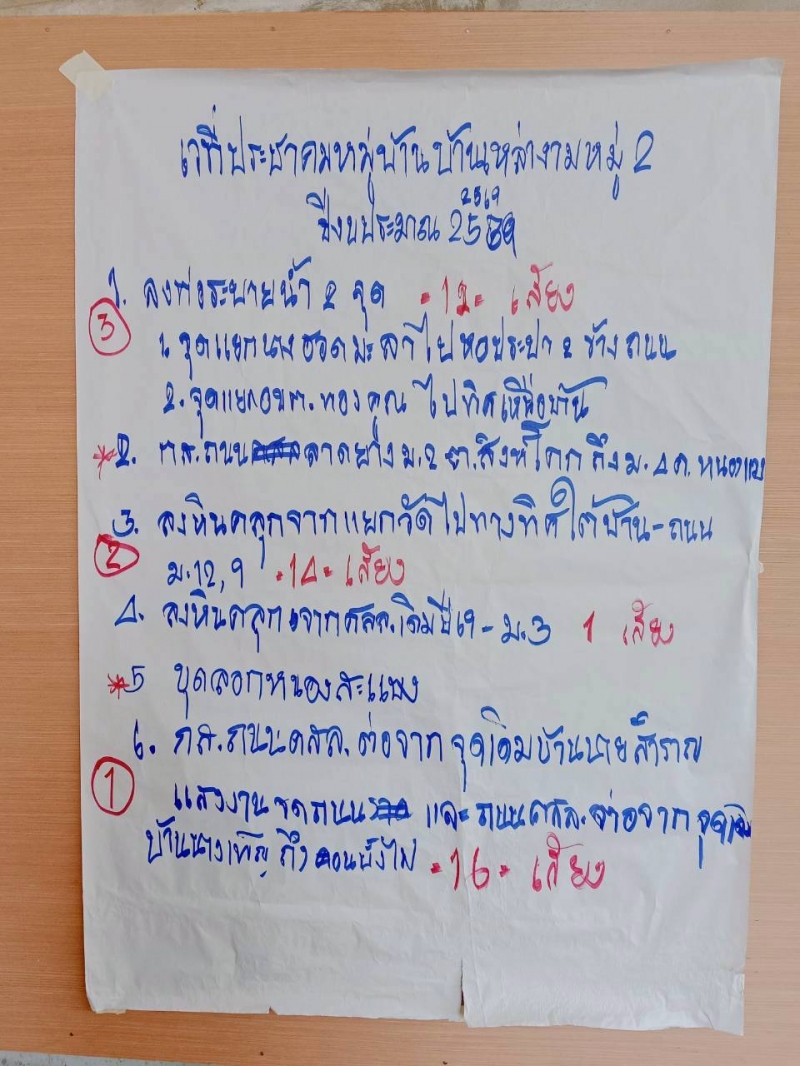 เวทีประชาคมหมู่บ้าน บ้านเหล่างามหมู่ 2
2569
ปีงบประมาณ 2569
1. ลงท่อระบายน้ำ 2 จุด -12- เสียง
3
1. จุดแยกนาง ไปหอประปา 2 ข้างถนน
2. จุดแยกอบต.ทองคูณ ไปทิศเหนือบ้าน
*2. กส.ถนน ลาดยาง ม.2 ต.สิงห์โคก ถึง ม.4 ต.หนองแวง
3. ลงหินคลุกจากแยกวัดไปทางทิศใต้บ้าน-ถนน
2
ม.12,9 -14- เสียง
4. ลงหินคลุกจากคสล.เดิมปี 69 - ม.3 1 เสียง
*5 ขุดลอกหนองสะแบง
6. กส.ถนนคสล.ต่อจากจุดเดิมบ้านนายสำราญ
1
แสงงาม และถนนคสล.ต่อจากจุดเดิม
บ้านนางเพ็ญ ถึงดอนบั้งไฟ -16- เสียง